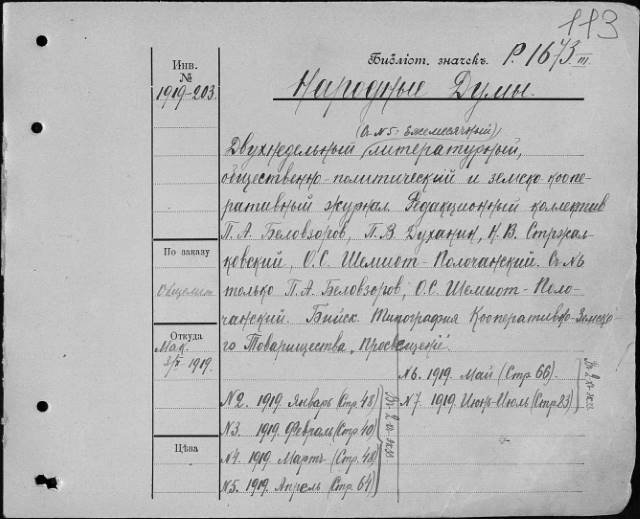 113
Библіот. значекъ. Р. 1673 III
Инв. №
1919-203.
Народные Думы.
(Съ №5: Ежемесячный)
Двухнедельный литературный,
общественно-политический и земско-коопе-
ративный журнал. Редакционный коллектив
П. А. Беловзоров, П. В. Духанин, Н. В. Стржал-
ковский, О. С. Шемиот-Полочанский. Съ №
только П. А. Беловзоров, О. С. Шемиот-Поло-
чанский. Бийск. Типография Кооперативно-Земско-
го Товарищества „Просвещение".
По заказу
Откуда
3/X 1919.
Цѣна
№2. 1919. Январь (Стр. 48)
№3. 1919. Февраль (Стр. 40)
№4. 1919. Мартъ (Стр. 48)
№5. 1919. Апрель (Стр. 64)
Въ 2-х экз.
№6. 1919. Май (Стр. 66).
№7. 1919. Июнь-Июль (Стр. 83)
Въ 2-х экз.